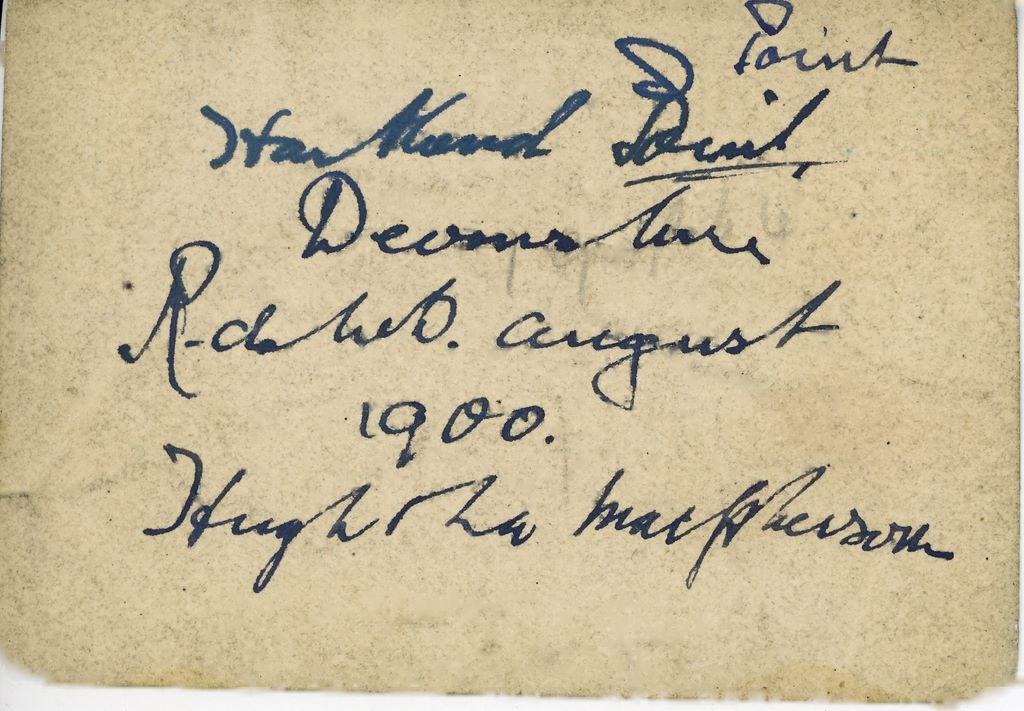 Point
Hartland Point,
Devonshire
R. de W. D. August
1900.
Hugh & Macpherson